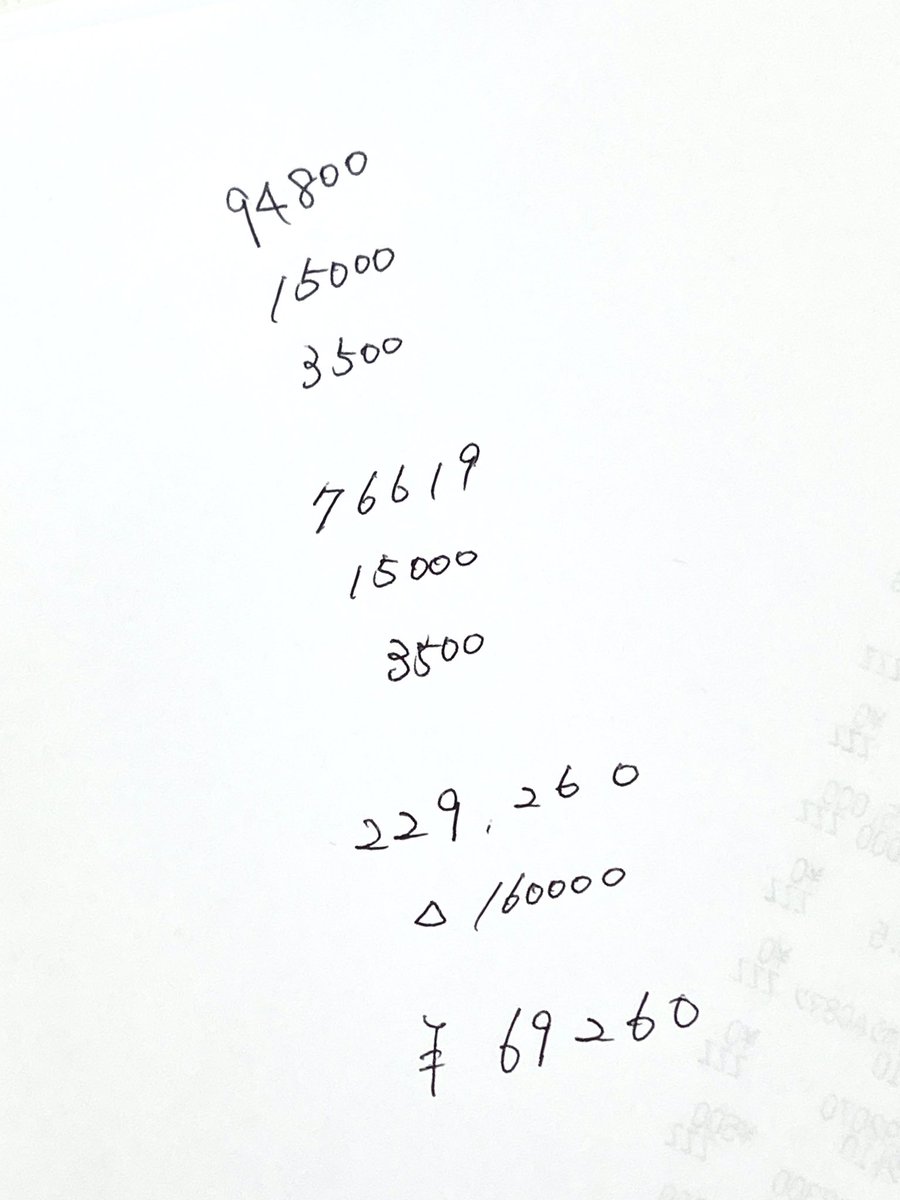 94800
15000
3500
76619
15000
3500
229,260
△ 160000
¥ 69260